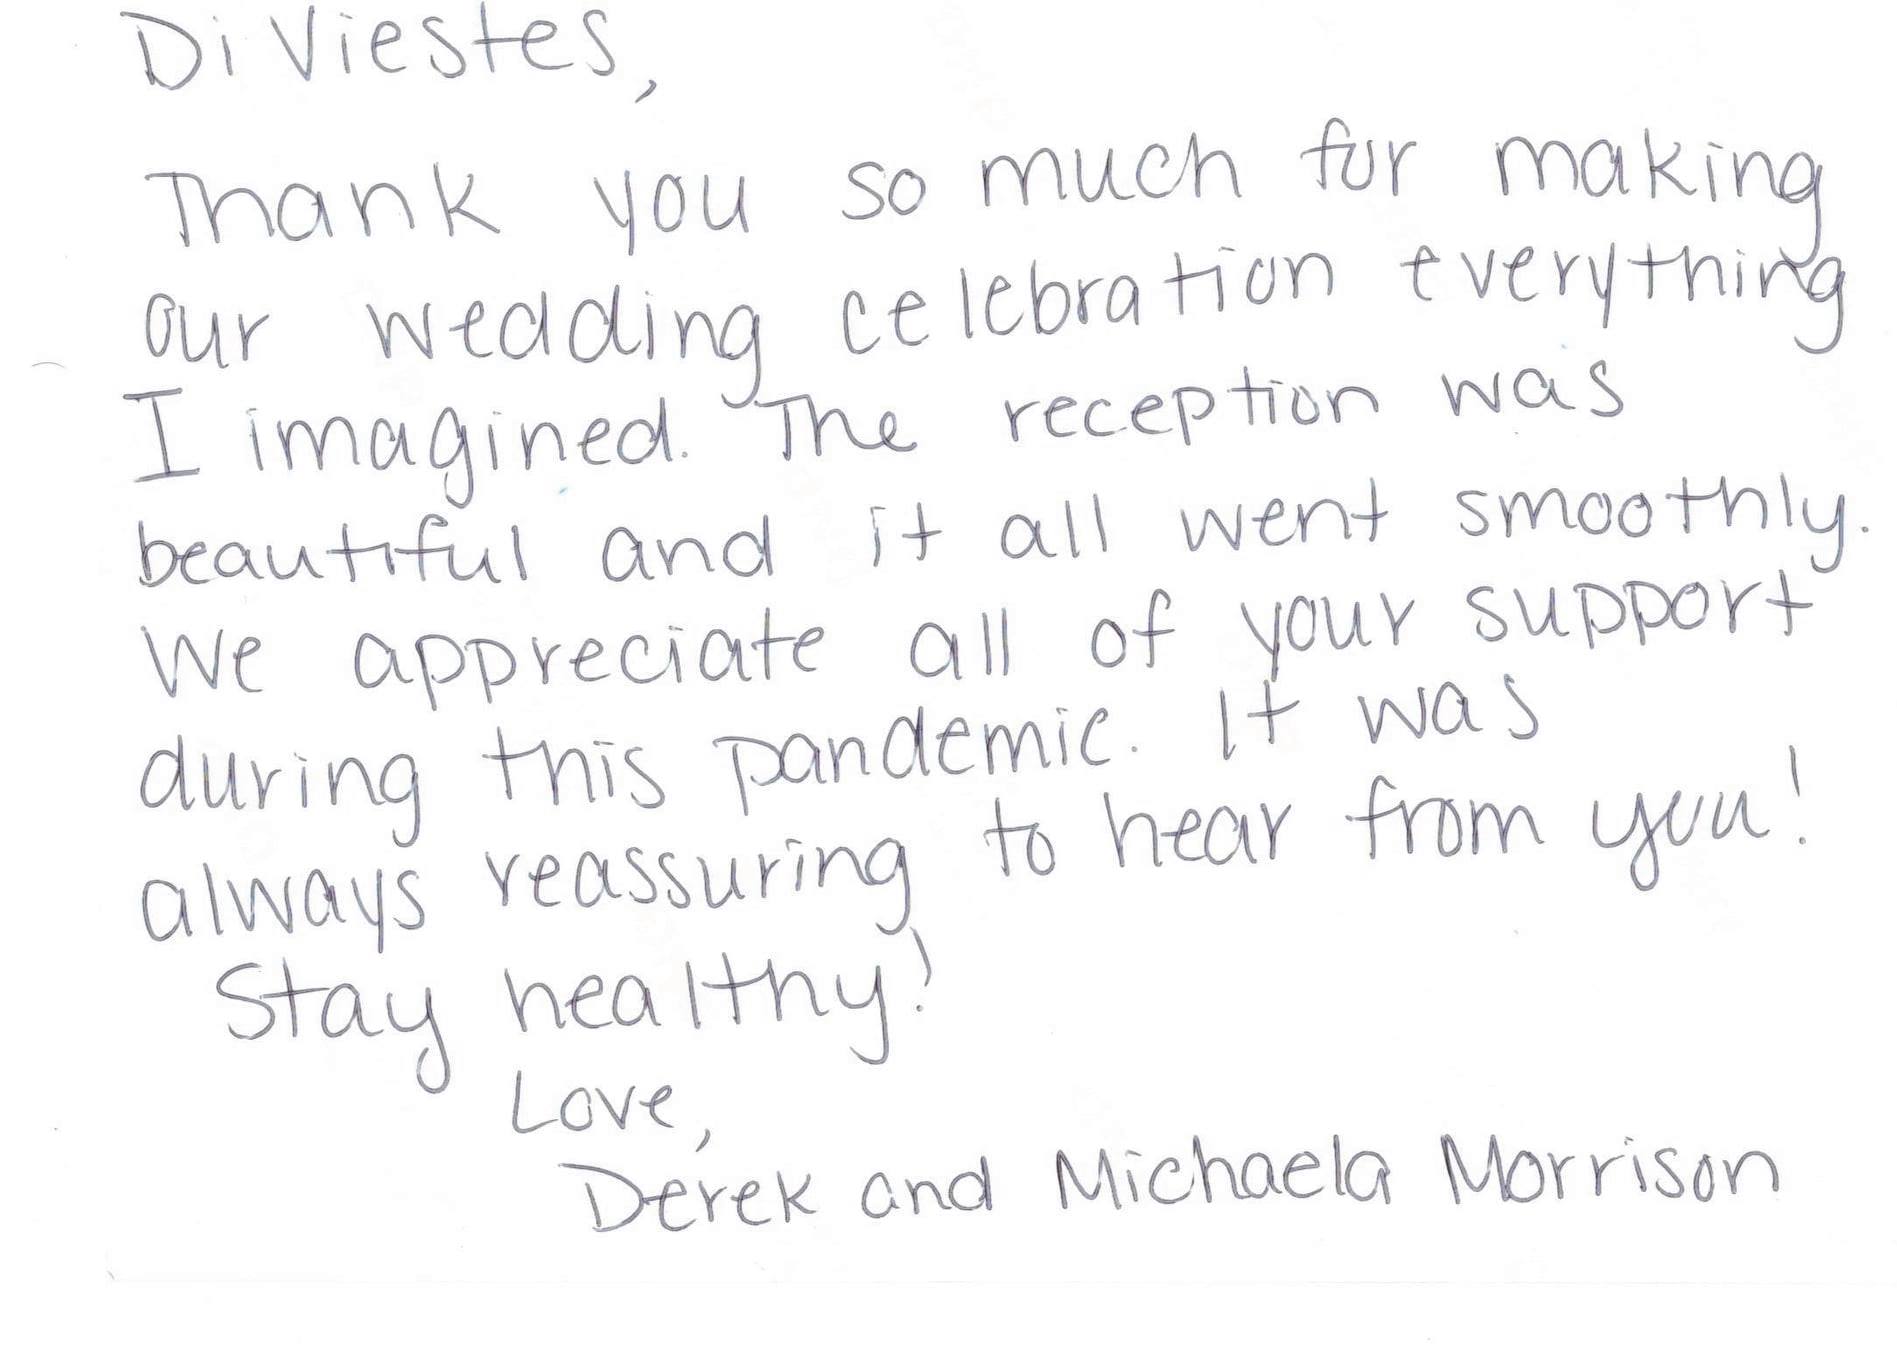 DiViestes,
Thank you so much for making
our wedding celebration everything
I imagined. The reception was
beautiful and it all went smoothly.
We appreciate all of your support
during this pandemic. It was
always reassuring to hear from you!
Stay healthy!
Love,
Derek and Michaela Morrison